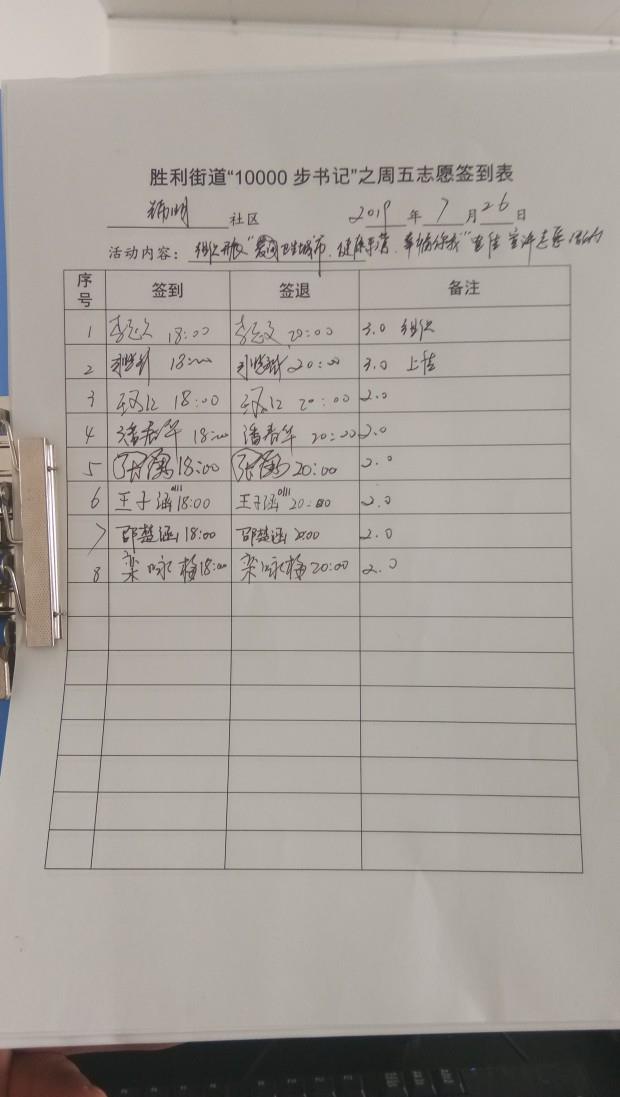 胜利街道“10000 步书记”之周五志愿签到表
社区 2019 年 7 月 26 日
活动内容: 组织开展“ 卫生城市、健康 、幸福你我” 宣传志愿活动
序号 签到 签退 备注
1 18:00 20:00 3.0 组织
2 18:00 20:00 3.0 上传
3 18:00 20:00 2.0
4 潘春华 18:00 潘春华 20:00 2.0
5 18:00 20:00 2.0
6 王子涵 18:00 王子涵 20:00 2.0
7 邵楚涵 18:00 邵楚涵 20:00 2.0
8 栾咏梅 18:00 栾咏梅 20:00 2.0